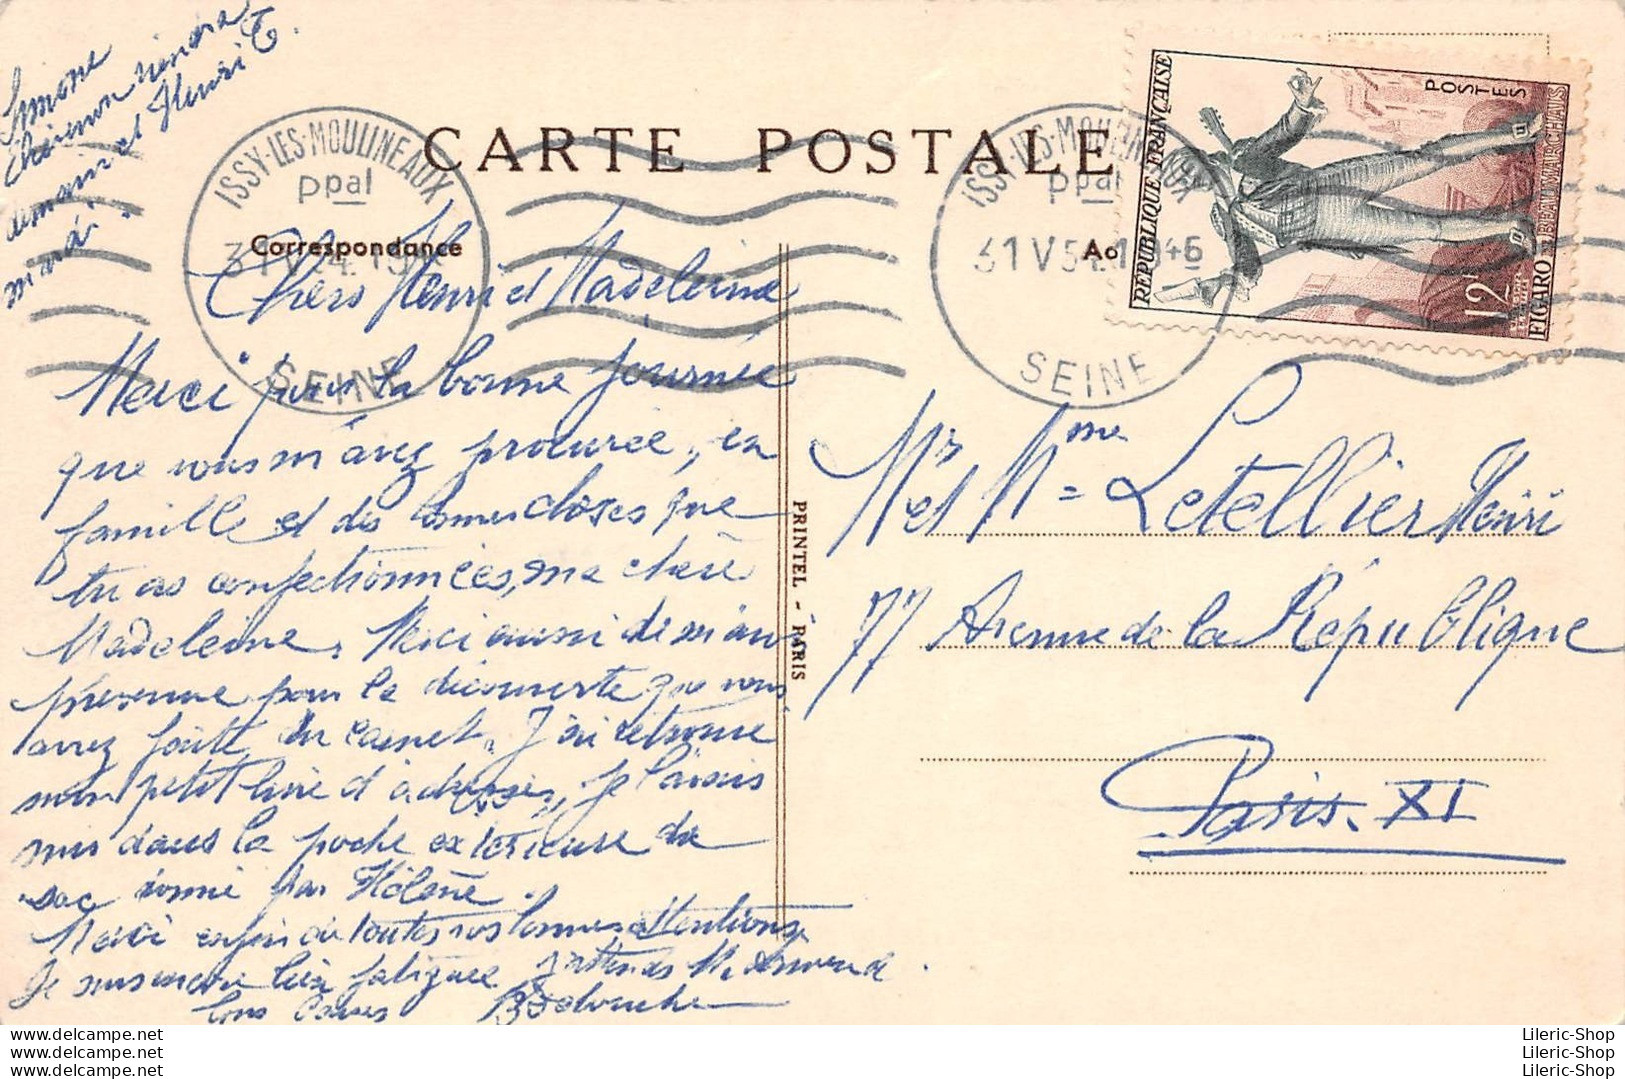 Simone
viendra
demain et Henri
mardi.
ISSY-LES-MOULINEAUX
ppal
SEINE
CARTE POSTALE
ISSY-LES-MOULINEAUX
ppal
31 V 54
SEINE
REPUBLIQUE FRANÇAISE
POSTES
BEAUMARCHAIS
FIGARO
12F
Correspondance
Chers Henri et Madeleine
Merci pour la bonne journée
que vous m'avez procurée, en
famille et des bonnes choses que
tu as confectionnées, ma chère
Madeleine. Merci aussi de m'avoir
prévenue pour la découverte que vous
avez faite du carnet. J'ai retrouvé
mon petit livre d'adresses, je l'avais
mis dans la poche extérieure du
sac donné par Hélène.
Merci enfin de toutes vos bonnes attentions
Je suis encore bien fatiguée j'attends M.
Bons baisers
PRINTEL - PARIS
Mr et Mme Letellier Henri
77 Avenue de la République
Paris. XI
Lileric-Shop
Lileric-Shop
Lileric-Shop
www.delcampe.net
www.delcampe.net
www.delcampe.net